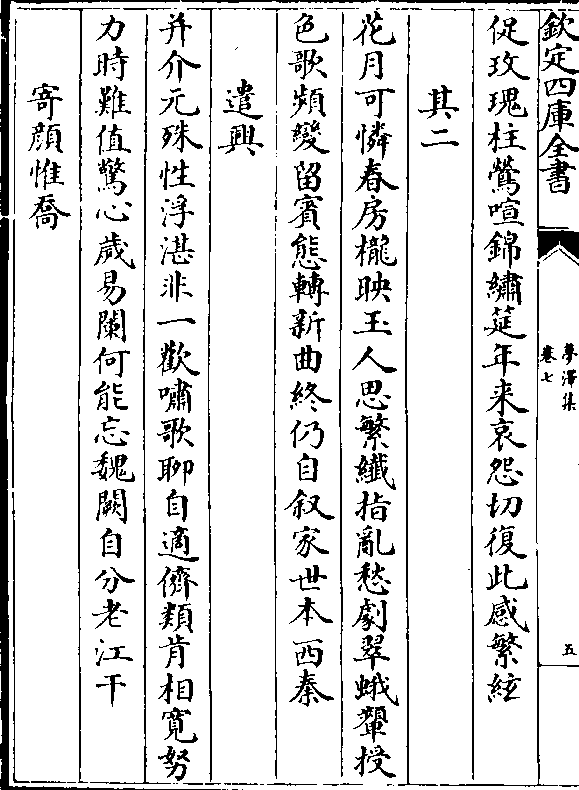 欽定四庫全書
夢澤集
卷七
五
促玫瑰柱鶯喧錦繡筵年来哀怨切復此感繁絃
其二
花月可憐春房櫳映玉人思繁纖指亂愁劇翠蛾顰授
色歌頻變留賓態轉新曲終仍自叙家世本西秦
遣興
并介元殊性浮湛非一歡嘯歌聊自適儕類肯相寛努
力時難值驚心歲易闌何能忘魏闕自分老江干
寄顔惟喬